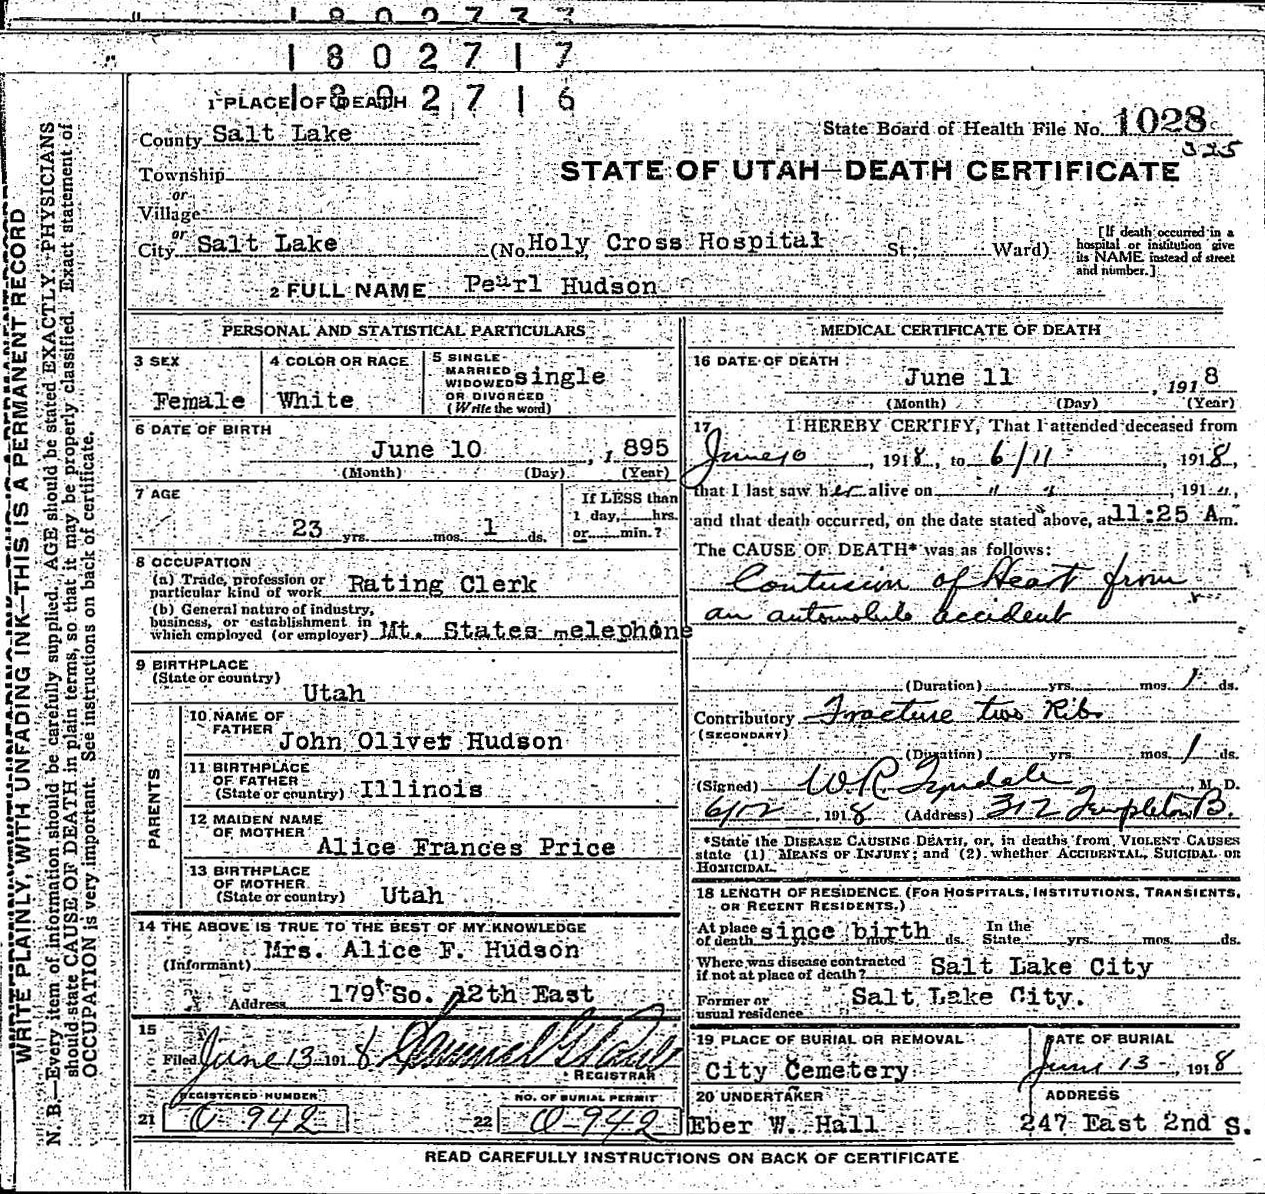 1802717
1802716
1 PLACE OF DEATH
County Salt Lake
State Board of Health File No. 1028
325
Township
or
Village
or
STATE OF UTAH—DEATH CERTIFICATE
City Salt Lake (No. Holy Cross Hospital St.; Ward)
[If death occurred in a
hospital or institution give
its NAME instead of street
and number.]
2 FULL NAME Pearl Hudson
WRITE PLAINLY, WITH UNFADING INK—THIS IS A PERMANENT RECORD
N. B.—Every item of information should be carefully supplied. AGE should be stated EXACTLY. PHYSICIANS
should state CAUSE OF DEATH in plain terms, so that it may be properly classified. Exact statement of
OCCUPATION is very important. See instructions on back of certificate.
PERSONAL AND STATISTICAL PARTICULARS
3 SEX
Female
4 COLOR OR RACE
White
5 SINGLE
MARRIED
WIDOWED
OR DIVORCED
(Write the word)
single
6 DATE OF BIRTH
June 10, 1895
(Month) (Day) (Year)
7 AGE
23 yrs. mos. 1 ds.
If LESS than
1 day, hrs.
or min.?
8 OCCUPATION
(a) Trade, profession or
particular kind of work Rating Clerk
(b) General nature of industry,
business, or establishment in
which employed (or employer) Mt. States Telephone
9 BIRTHPLACE
(State or country)
Utah
PARENTS
10 NAME OF
FATHER
John Oliver Hudson
11 BIRTHPLACE
OF FATHER
(State or country) Illinois
12 MAIDEN NAME
OF MOTHER
Alice Frances Price
13 BIRTHPLACE
OF MOTHER
(State or country) Utah
14 THE ABOVE IS TRUE TO THE BEST OF MY KNOWLEDGE
Mrs. Alice F. Hudson
(Informant)
Address 179 So. 12th East
15
Filed June 13 1918
REGISTRAR
REGISTERED NUMBER
21 O-942
NO. OF BURIAL PERMIT
22 O-942
MEDICAL CERTIFICATE OF DEATH
16 DATE OF DEATH
June 11, 1918
(Month) (Day) (Year)
17 I HEREBY CERTIFY, That I attended deceased from
June 10, 1918, to 6/11, 1918,
that I last saw her alive on " ", 191",
and that death occurred, on the date stated above, at 11:25 Am.
The CAUSE OF DEATH* was as follows:
Contusion of Heart from
an automobile accident
(Duration) yrs. mos. 1 ds.
Contributory Fracture two Ribs
(SECONDARY)
(Duration) yrs. mos. 1 ds.
(Signed) W.R. Tyndale M. D.
6/12, 1918 (Address) 312 Templeton B.
*State the DISEASE CAUSING DEATH, or, in deaths from VIOLENT CAUSES
state (1) MEANS OF INJURY; and (2) whether ACCIDENTAL, SUICIDAL OR
HOMICIDAL.
18 LENGTH OF RESIDENCE (FOR HOSPITALS, INSTITUTIONS, TRANSIENTS,
OR RECENT RESIDENTS.)
At place
of death since birth yrs. mos. ds. In the
State yrs. mos. ds.
Where was disease contracted
if not at place of death? Salt Lake City
Former or
usual residence Salt Lake City.
19 PLACE OF BURIAL OR REMOVAL
City Cemetery
DATE OF BURIAL
June 13, 1918
20 UNDERTAKER
Eber W. Hall
ADDRESS
247 East 2nd S.
READ CAREFULLY INSTRUCTIONS ON BACK OF CERTIFICATE